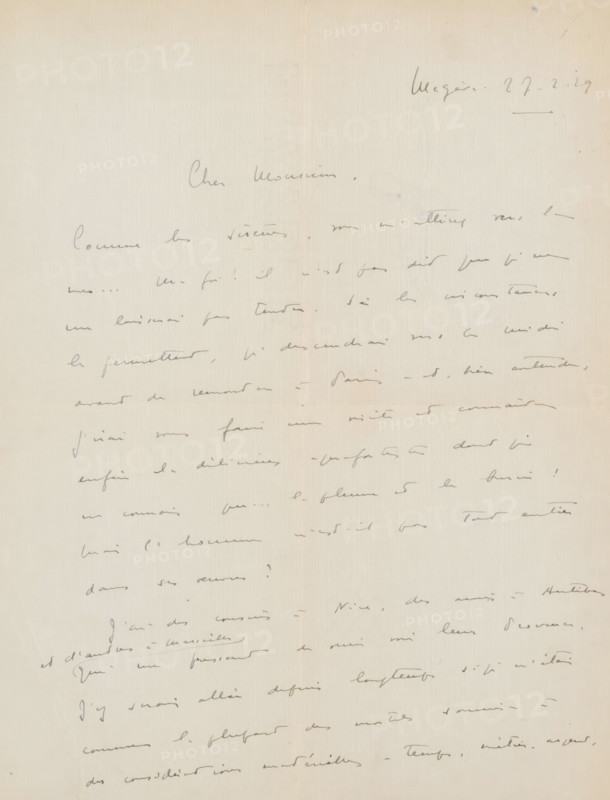 Megève. 27.2.29
Cher Monsieur,
Comme les sirènes, vous m'attirez vers la
mer... Ma foi! il n'est pas dit que je ne
me laisserai pas tenter. Si les circonstances
le permettent, je descendrai vers le midi
avant de remonter à Paris et, bien entendu,
j'irai vous faire une visite et connaître
enfin le délicieux aquafortiste dont je
ne connais que... la plume et le burin!
Mais l'homme n'est-il pas tout entier
dans ses œuvres?
J'ai des cousins à Nice, des amis à Antibes
et d'autres à Marseille
qui me pressent de venir voir leur Provence.
J'y serais allé depuis longtemps si je n'étais
comme la plupart des mortels soumis à
des considérations matérielles - temps, métier, argent,
PHOTO12